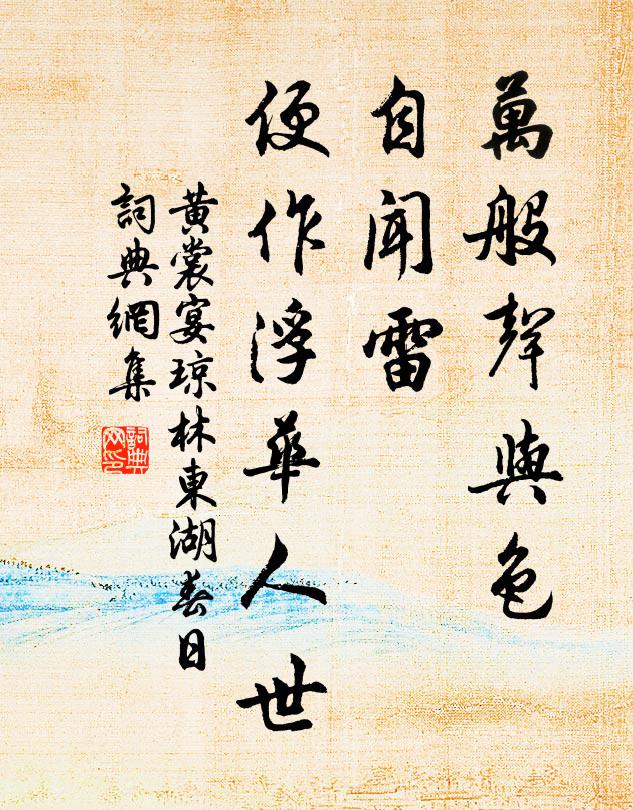 萬般聲與色
自聞雷
便作浮華人世
黃裳宴琼林東湖春日
詞典網集
詞典
网印